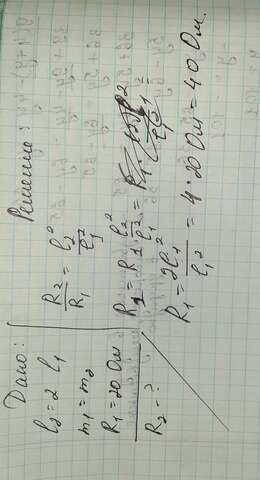 Дано:
l₂ = 2 l₁
m₁ = m₂
R₁ = 20 Ом
R₂ = ?
Решение:
R₂/R₁ = l₂²/l₁²
R₁ = R₁ l₂²/l₁² =
R₁ = 2l₁²/l₁² = 4 · 20 Ом = 40 Ом.